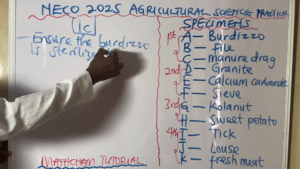 NECO 2025 AGRICULTURAL SCIENCE PRACTICAL
1c
- Ensure the burdizzo
is
SPECIMENS
1st A - Burdizzo
B - File
C - manure drag
2nd D - Granite
E - Calcium carbonate
F - Sieve
3rd G - Kolanut
H - Sweet potato
4th I - Tick
J - Louse
K - fresh meat
TUTORIAL